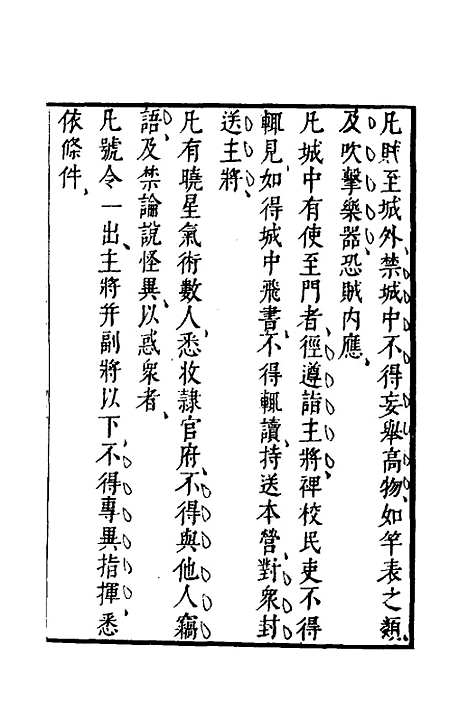 凡賊至城外、禁城中不得妄舉高物、如竿表之類、
及吹擊樂器、恐賊內應、
凡城中有使至門者、徑遵詣主將、裨校民吏不得
輒見、如得城中飛書、不得輒讀、持送本營、對衆封
送主將、
凡有曉星氣術數人、悉收隷官府、不得與他人竊
語、及禁論說怪異、以惑衆者、
凡號令一出、主將并副將以下、不得專異指揮、悉
依條件、